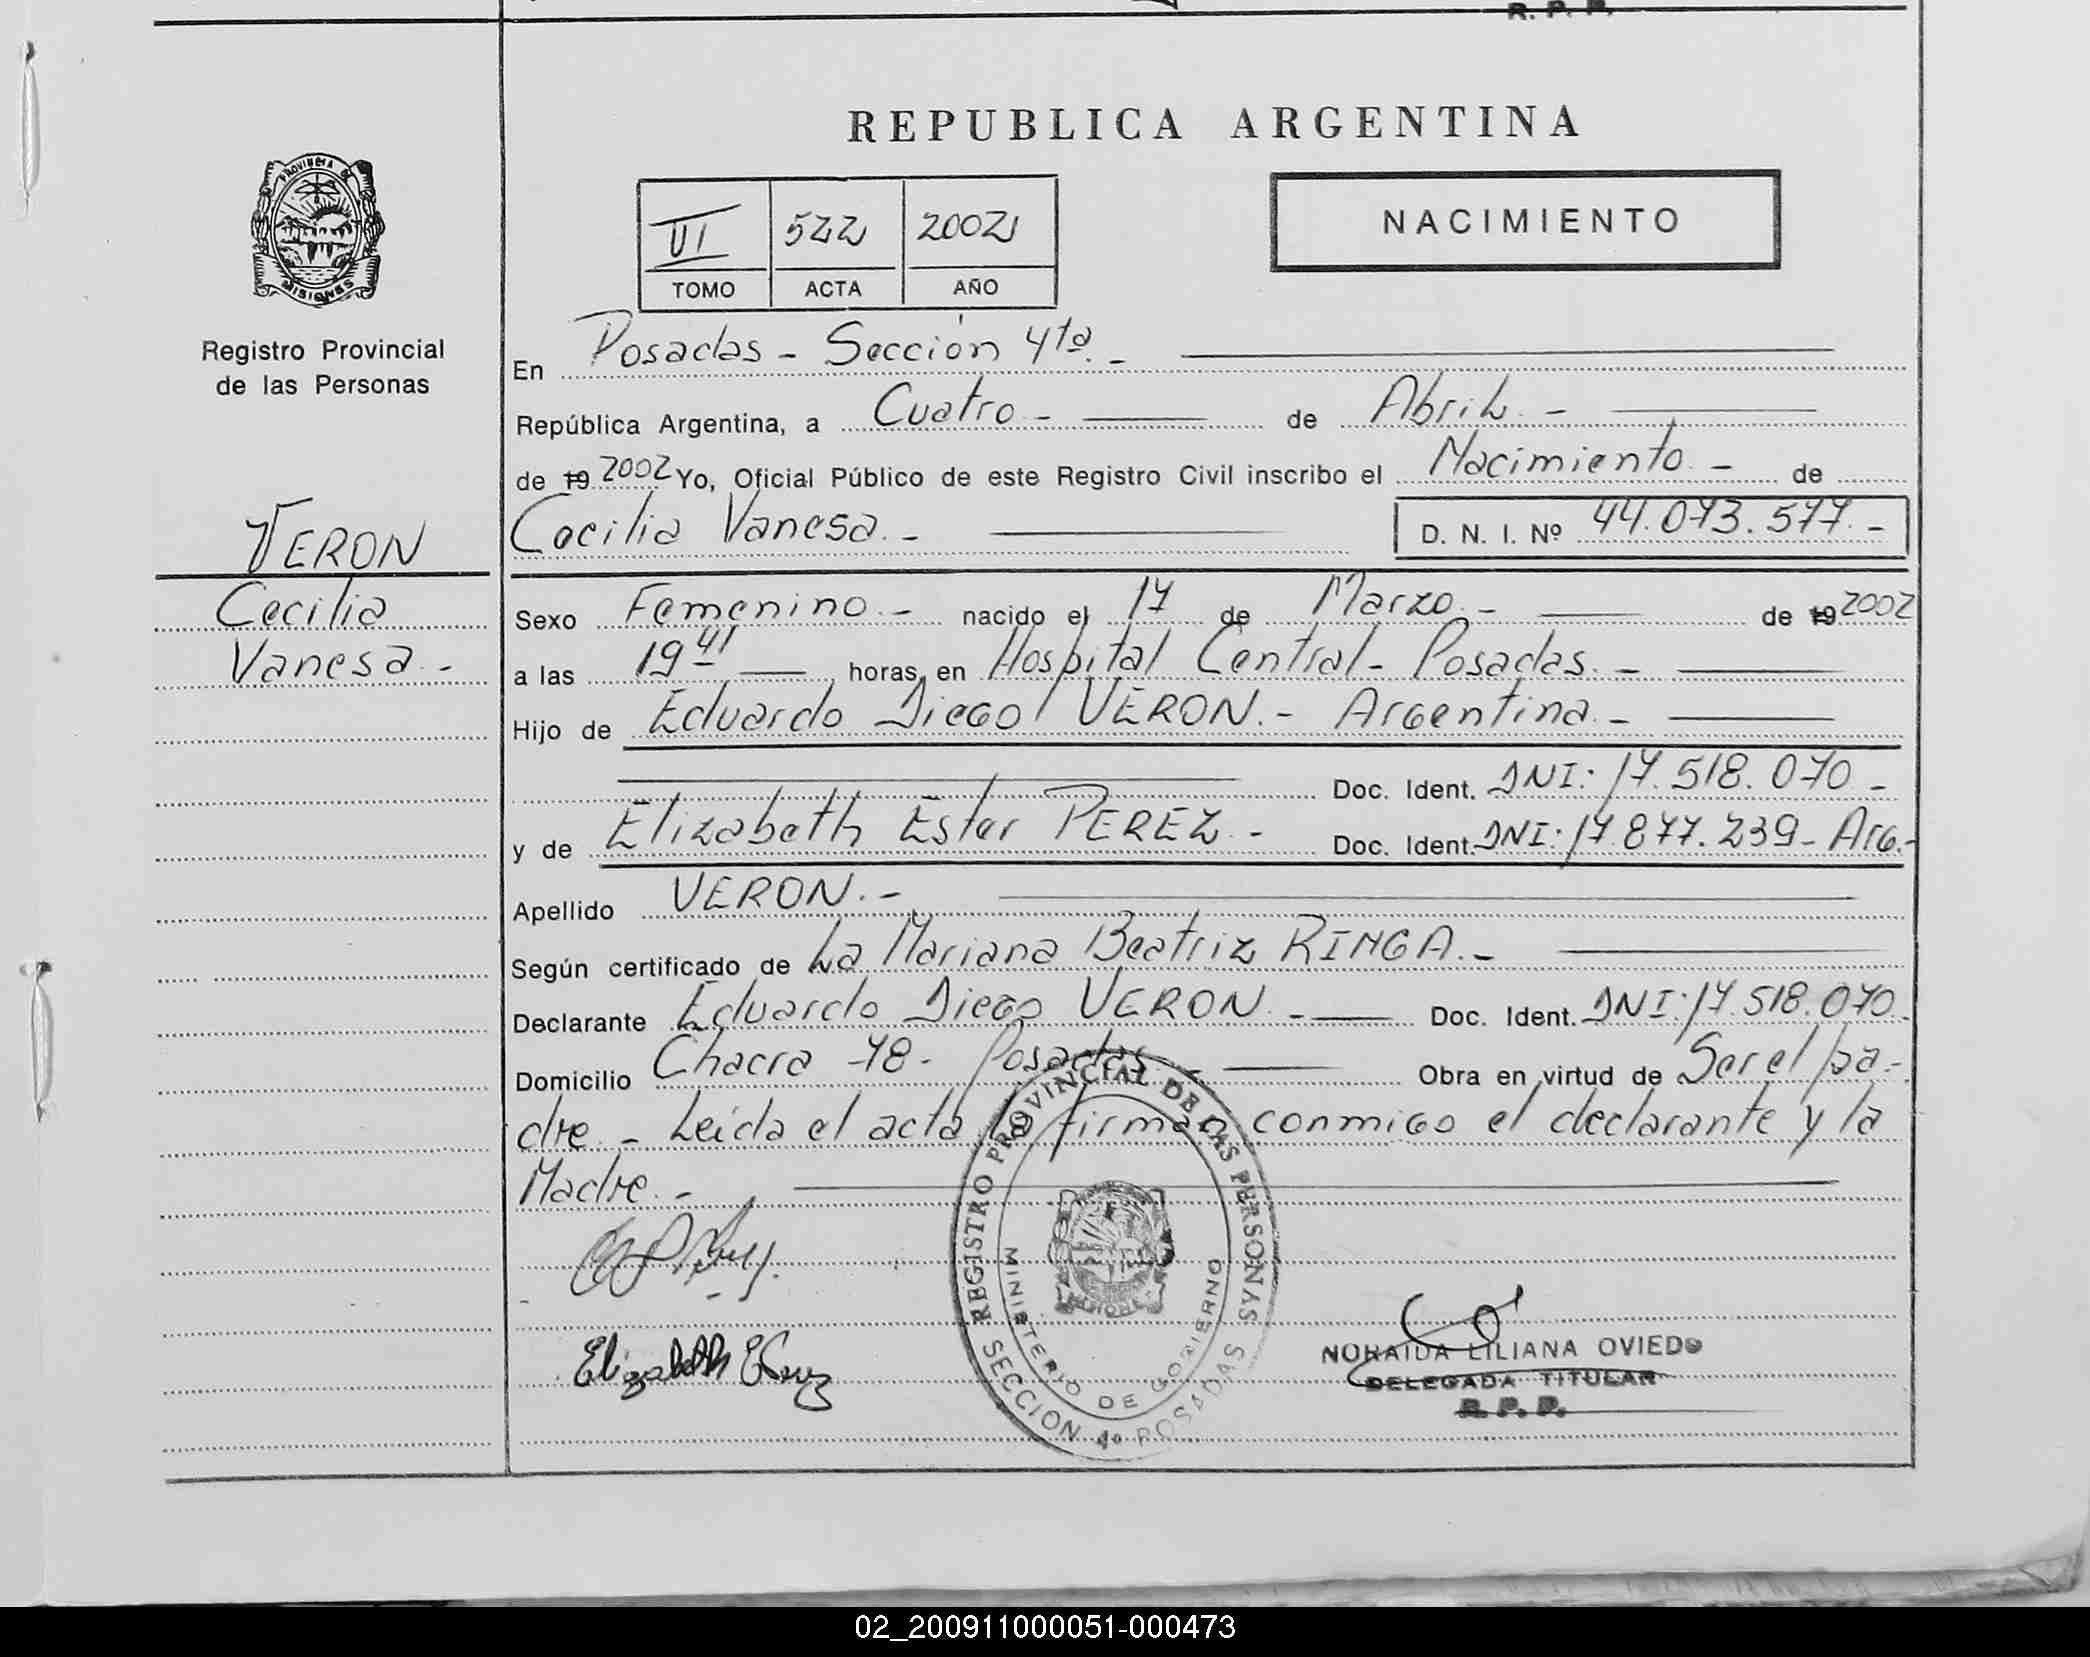 R. P. P.
REPUBLICA ARGENTINA
PROVINCIA DE
MISIONES
VI 522 2002
TOMO ACTA AÑO
NACIMIENTO
Registro Provincial
de las Personas
En Posadas - Sección 4ta. -
República Argentina, a Cuatro - de Abril. -
de 19 2002 Yo, Oficial Público de este Registro Civil inscribo el Nacimiento. - de
VERON
Cecilia Vanesa. - D. N. I. Nº 44.073.577. -
Cecilia
Vanesa. -
Sexo Femenino. - nacido el 17 de Marzo. - de 19 2002
a las 19 41 horas, en Hospital Central - Posadas. -
Hijo de Eduardo Diego VERON. - Argentina. -
Doc. Ident. DNI: 17.518.070 -
y de Elizabeth Ester PEREZ. - Doc. Ident. DNI: 17.877.239 - Arg. -
Apellido VERON. -
Según certificado de La Mariana Beatriz RINGA. -
Declarante Eduardo Diego VERON. - Doc. Ident. DNI: 17.518.070.
Domicilio Chacra 78 - Posadas. - Obra en virtud de Ser el pa-
dre. - Leída el acta la firman conmigo el declarante y la
Madre. -
REGISTRO PROVINCIAL DE LAS PERSONAS
MINISTERIO DE GOBIERNO
SECCION 4º POSADAS
Elizabeth E Perez
NORAIDA LILIANA OVIEDO
DELEGADA TITULAR
R. P. P.
02_200911000051-000473